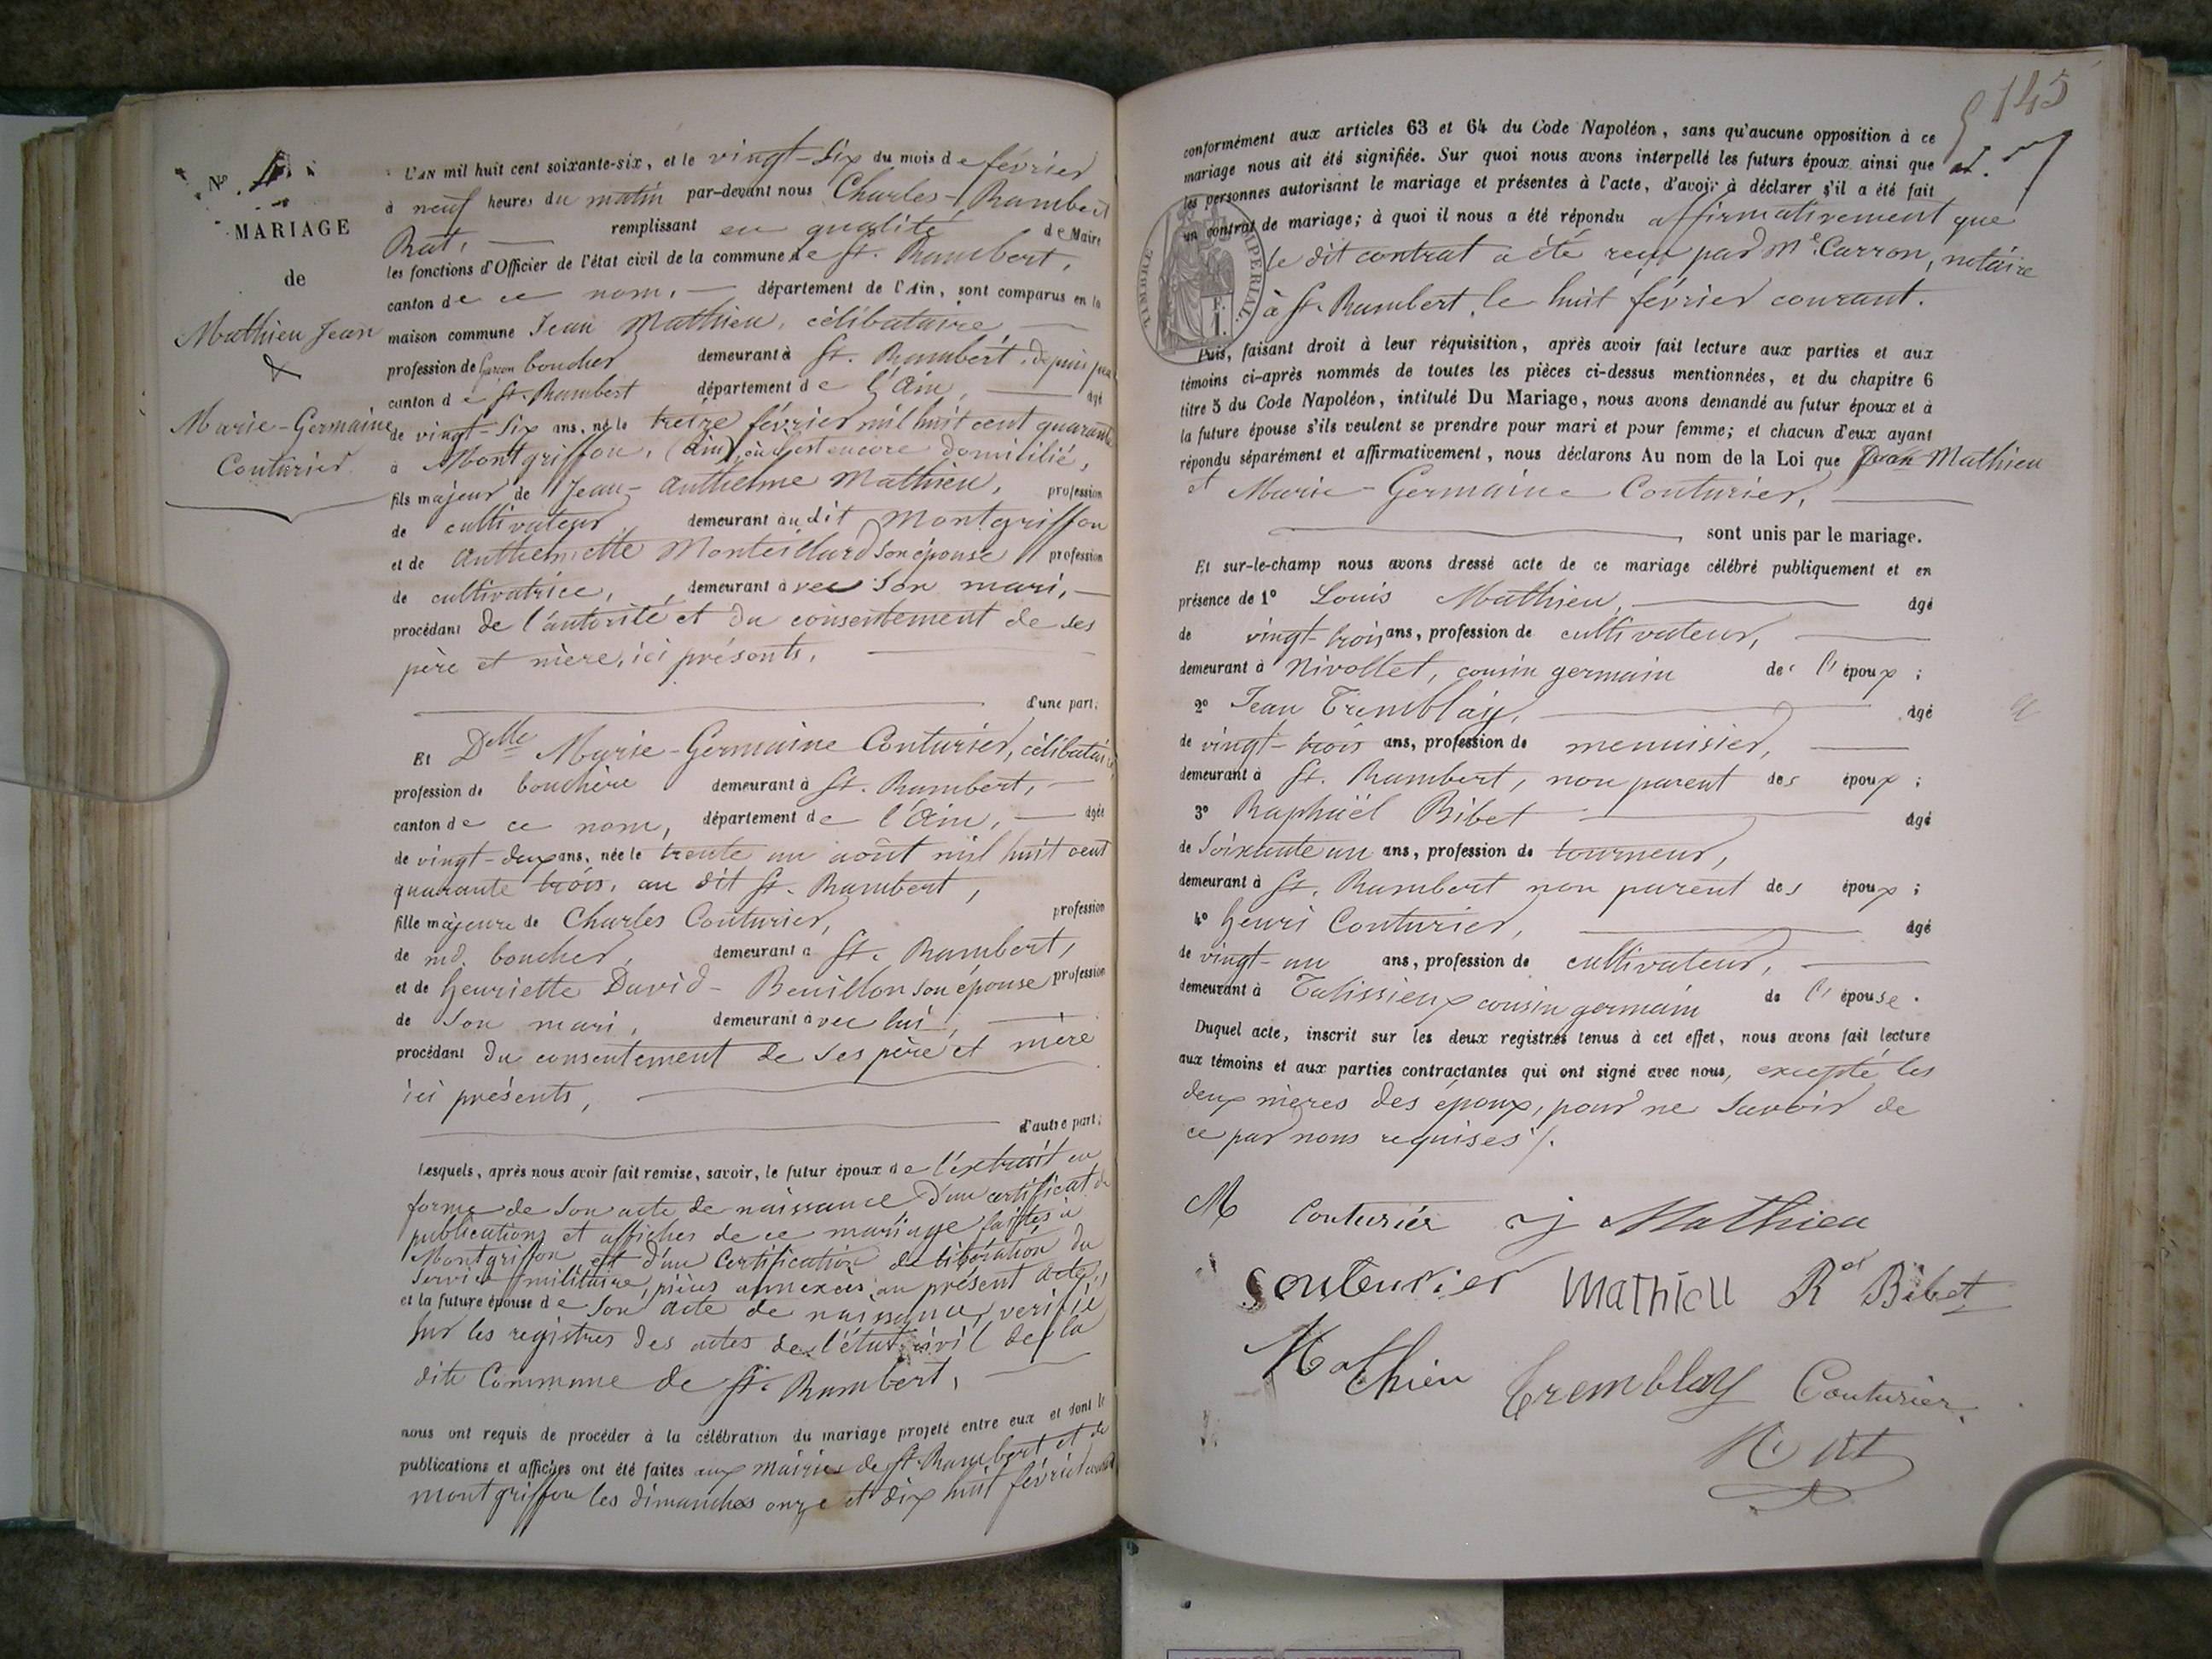 N° 4
MARIAGE
de
Mathieu Jean
&
Marie-Germaine
Couturier
L'AN mil huit cent soixante-six, et le vingt-six du mois de février
à neuf heures du matin par-devant nous Charles-Rambert
Rat, remplissant en qualité de Maire
les fonctions d'Officier de l'état civil de la commune de St. Rambert,
canton de ce nom, département de l'Ain, sont comparus en la
maison commune Jean Mathieu, célibataire
profession de garçon boucher demeurant à St. Rambert, depuis peu
canton de St. Rambert département de l'Ain, âgé
de vingt-six ans, né le treize février mil huit cent quarante
à Montgriffon, (Ain), où il est encore domicilié,
fils majeur de Jean-Anthelme Mathieu, profession
de cultivateur, demeurant au dit Montgriffon
et de Anthelmette Monteillard son épouse profession
de cultivatrice, demeurant avec son mari,
procédant de l'autorité et du consentement de ses
père et mère, ici présents,
d'une part;
Et Delle Marie-Germaine Couturier, célibataire
profession de bouchère demeurant à St. Rambert,
canton de ce nom, département de l'Ain, âgée
de vingt-deux ans, née le trente un août mil huit cent
quarante trois, au dit St. Rambert,
fille majeure de Charles Couturier, profession
de md. boucher, demeurant à St. Rambert,
et de henriette David-Beuillon son épouse profession
de son mari, demeurant avec lui,
procédant du consentement de ses père et mère
ici présents,
d'autre part;
Lesquels, après nous avoir fait remise, savoir, le futur époux de l'extrait en
forme de son acte de naissance, d'un certificat de
publications et affiches de ce mariage faites à
Montgriffon, et d'un Certification de libération du
service militaire, pièces annexées au présent acte,
et la future épouse de son acte de naissance, vérifié
sur les registres des actes de l'état civil de la
dite Commune de St. Rambert,
nous ont requis de procéder à la célébration du mariage projeté entre eux et dont les
publications et affiches ont été faites aux mairies de St. Rambert et de
Montgriffon les dimanches onze et dix huit février courant
145
conformément aux articles 63 et 64 du Code Napoléon, sans qu'aucune opposition à ce
mariage nous ait été signifiée. Sur quoi nous avons interpellé les futurs époux ainsi que
les personnes autorisant le mariage et présentes à l'acte, d'avoir à déclarer s'il a été fait
un contrat de mariage; à quoi il nous a été répondu affirmativement que
le dit contrat a été reçu par Me. Carron, notaire
à St. Rambert, le huit février courant.
TIMBRE IMPERIAL
1 F.
Puis, faisant droit à leur réquisition, après avoir fait lecture aux parties et aux
témoins ci-après nommés de toutes les pièces ci-dessus mentionnées, et du chapitre 6
titre 5 du Code Napoléon, intitulé Du Mariage, nous avons demandé au futur époux et à
la future épouse s'ils veulent se prendre pour mari et pour femme; et chacun d'eux ayant
répondu séparément et affirmativement, nous déclarons Au nom de la Loi que Jean Mathieu
et Marie-Germaine Couturier,
sont unis par le mariage.
Et sur-le-champ nous avons dressé acte de ce mariage célébré publiquement et en
présence de 1° Louis Mathieu, âgé
de vingt-trois ans, profession de cultivateur,
demeurant à Nivollet, cousin germain de l'époux;
2° Jean Tremblay, âgé
de vingt-trois ans, profession de menuisier,
demeurant à St. Rambert, non parent des époux;
3° Raphaël Bibet âgé
de soixante un ans, profession de tourneur,
demeurant à St. Rambert non parent des époux;
4° henri Couturier, âgé
de vingt-un ans, profession de cultivateur,
demeurant à Talissieux cousin germain de l'épouse.
Duquel acte, inscrit sur les deux registres tenus à cet effet, nous avons fait lecture
aux témoins et aux parties contractantes qui ont signé avec nous, excepté les
deux mères des époux, pour ne savoir de
ce par nous requises /.
M Couturier j Mathieu
Couturier Mathieu Rel Bibet
Mathieu Tremblay Couturier
Rat